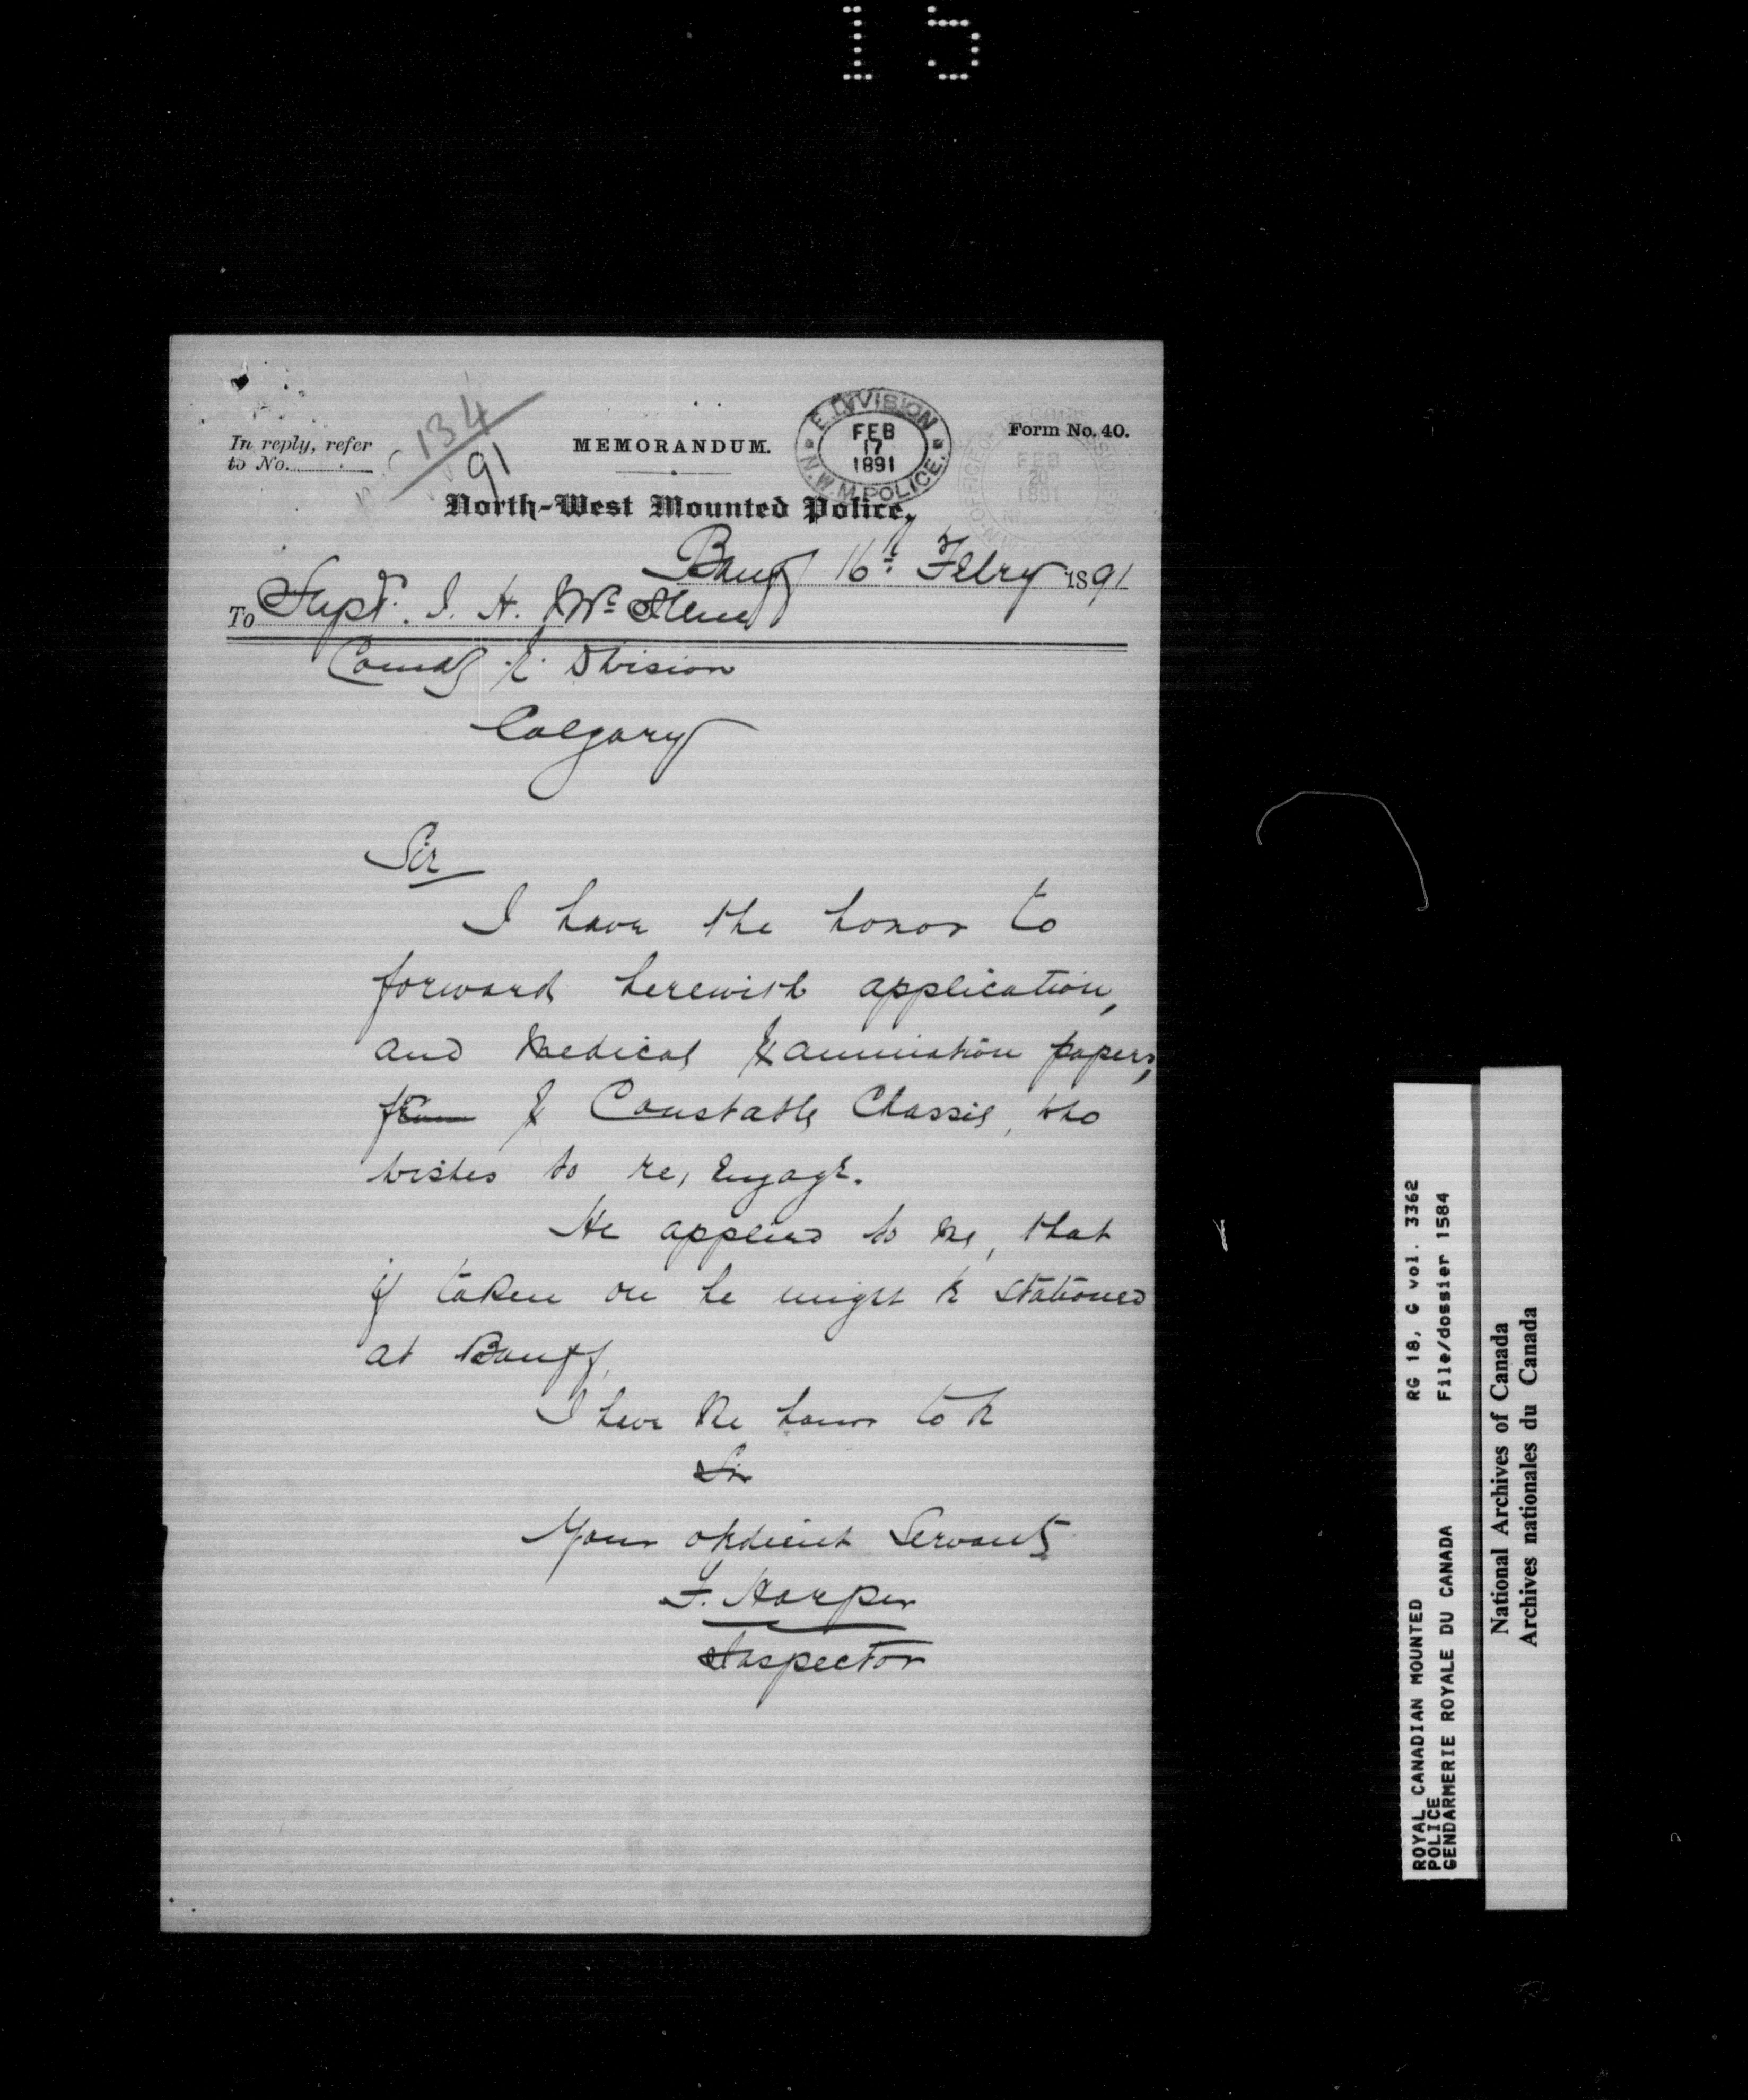 15
In reply, refer
to No.
134
91
MEMORANDUM.
E. DIVISION
FEB
17
1891
N.W.M. POLICE.
Form No. 40.
OFFICE OF THE COMMISSIONER
FEB
20
1891
North-West Mounted Police,
Banff 16th Febry 1891
To Supt. J. H. McIllree
Comdg E. Division
Calgary
Sir
I have the honor to
forward herewith application,
and Medical Examination papers,
from of Constable Chassie, who
wishes to re, engage.
He applied to me, that
if taken on he might be stationed
at Banff.
I have the honor to be
Sir
Your obedient Servant
F. Harper
Inspector
ROYAL CANADIAN MOUNTED
POLICE
GENDARMERIE ROYALE DU CANADA
RG 18, G vol. 3362
File/dossier 1584
National Archives of Canada
Archives nationales du Canada